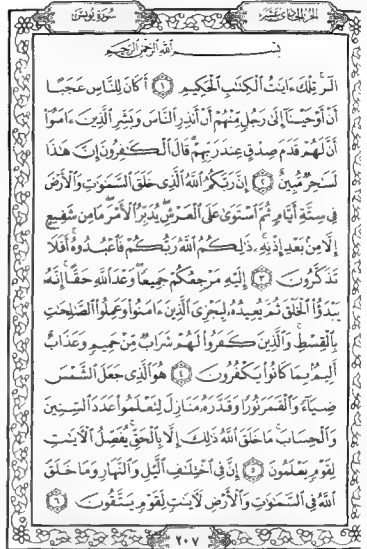 الجزء الحادي عشر
سورة يونس
بِسْمِ ٱللَّهِ ٱلرَّحْمَٰنِ ٱلرَّحِيمِ
الٓر تِلْكَ ءَايَٰتُ ٱلْكِتَٰبِ ٱلْحَكِيمِ ١ أَكَانَ لِلنَّاسِ عَجَبًا
أَنْ أَوْحَيْنَآ إِلَىٰ رَجُلٍ مِّنْهُمْ أَنْ أَنذِرِ ٱلنَّاسَ وَبَشِّرِ ٱلَّذِينَ ءَامَنُوٓا۟
أَنَّ لَهُمْ قَدَمَ صِدْقٍ عِندَ رَبِّهِمْ قَالَ ٱلْكَٰفِرُونَ إِنَّ هَٰذَا
لَسَٰحِرٌ مُّبِينٌ ٢ إِنَّ رَبَّكُمُ ٱللَّهُ ٱلَّذِى خَلَقَ ٱلسَّمَٰوَٰتِ وَٱلْأَرْضَ
فِى سِتَّةِ أَيَّامٍ ثُمَّ ٱسْتَوَىٰ عَلَى ٱلْعَرْشِ يُدَبِّرُ ٱلْأَمْرَ مَا مِن شَفِيعٍ
إِلَّا مِنۢ بَعْدِ إِذْنِهِۦ ذَٰلِكُمُ ٱللَّهُ رَبُّكُمْ فَٱعْبُدُوهُ أَفَلَا
تَذَكَّرُونَ ٣ إِلَيْهِ مَرْجِعُكُمْ جَمِيعًا وَعْدَ ٱللَّهِ حَقًّا إِنَّهُۥ
يَبْدَؤُا۟ ٱلْخَلْقَ ثُمَّ يُعِيدُهُۥ لِيَجْزِىَ ٱلَّذِينَ ءَامَنُوا۟ وَعَمِلُوا۟ ٱلصَّٰلِحَٰتِ
بِٱلْقِسْطِ وَٱلَّذِينَ كَفَرُوا۟ لَهُمْ شَرَابٌ مِّنْ حَمِيمٍ وَعَذَابٌ
أَلِيمٌۢ بِمَا كَانُوا۟ يَكْفُرُونَ ٤ هُوَ ٱلَّذِى جَعَلَ ٱلشَّمْسَ
ضِيَآءً وَٱلْقَمَرَ نُورًا وَقَدَّرَهُۥ مَنَازِلَ لِتَعْلَمُوا۟ عَدَدَ ٱلسِّنِينَ
وَٱلْحِسَابَ مَا خَلَقَ ٱللَّهُ ذَٰلِكَ إِلَّا بِٱلْحَقِّ يُفَصِّلُ ٱلْءَايَٰتِ
لِقَوْمٍ يَعْلَمُونَ ٥ إِنَّ فِى ٱخْتِلَٰفِ ٱلَّيْلِ وَٱلنَّهَارِ وَمَا خَلَقَ
ٱللَّهُ فِى ٱلسَّمَٰوَٰتِ وَٱلْأَرْضِ لَءَايَٰتٍ لِّقَوْمٍ يَتَّقُونَ ٦
٢٠٧